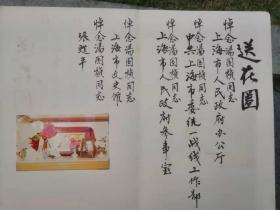 送花圈
悼念湯国楨同志
上海市人民政府办公厅
悼念湯国楨同志
中共上海市委统一战线工作部
悼念湯国楨同志
上海市人民政府参事室
悼念湯国楨同志
上海市文史馆
悼念湯国楨同志
张甦平